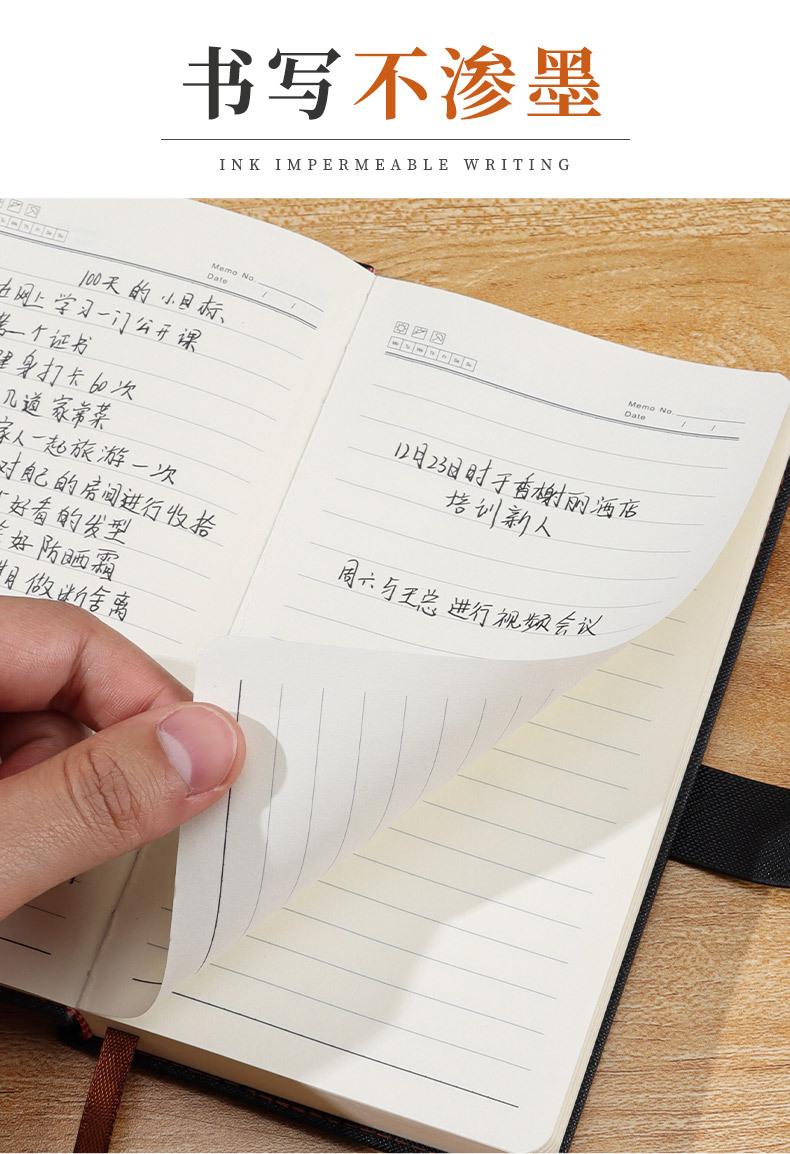 书写不渗墨
INK IMPERMEABLE WRITING
Memo No.
Date / /
100天的小目标、
在网上学习一门公开课
一个证书
健身打卡60次
几道家常菜
家人一起旅游一次
对自己的房间进行收拾
好看的发型
好防晒霜
做断舍离
Mo Tu We Th Fr Sa Su
Memo No.
Date / /
12月23日时于香榭丽酒店
培训新人
周六与王总进行视频会议